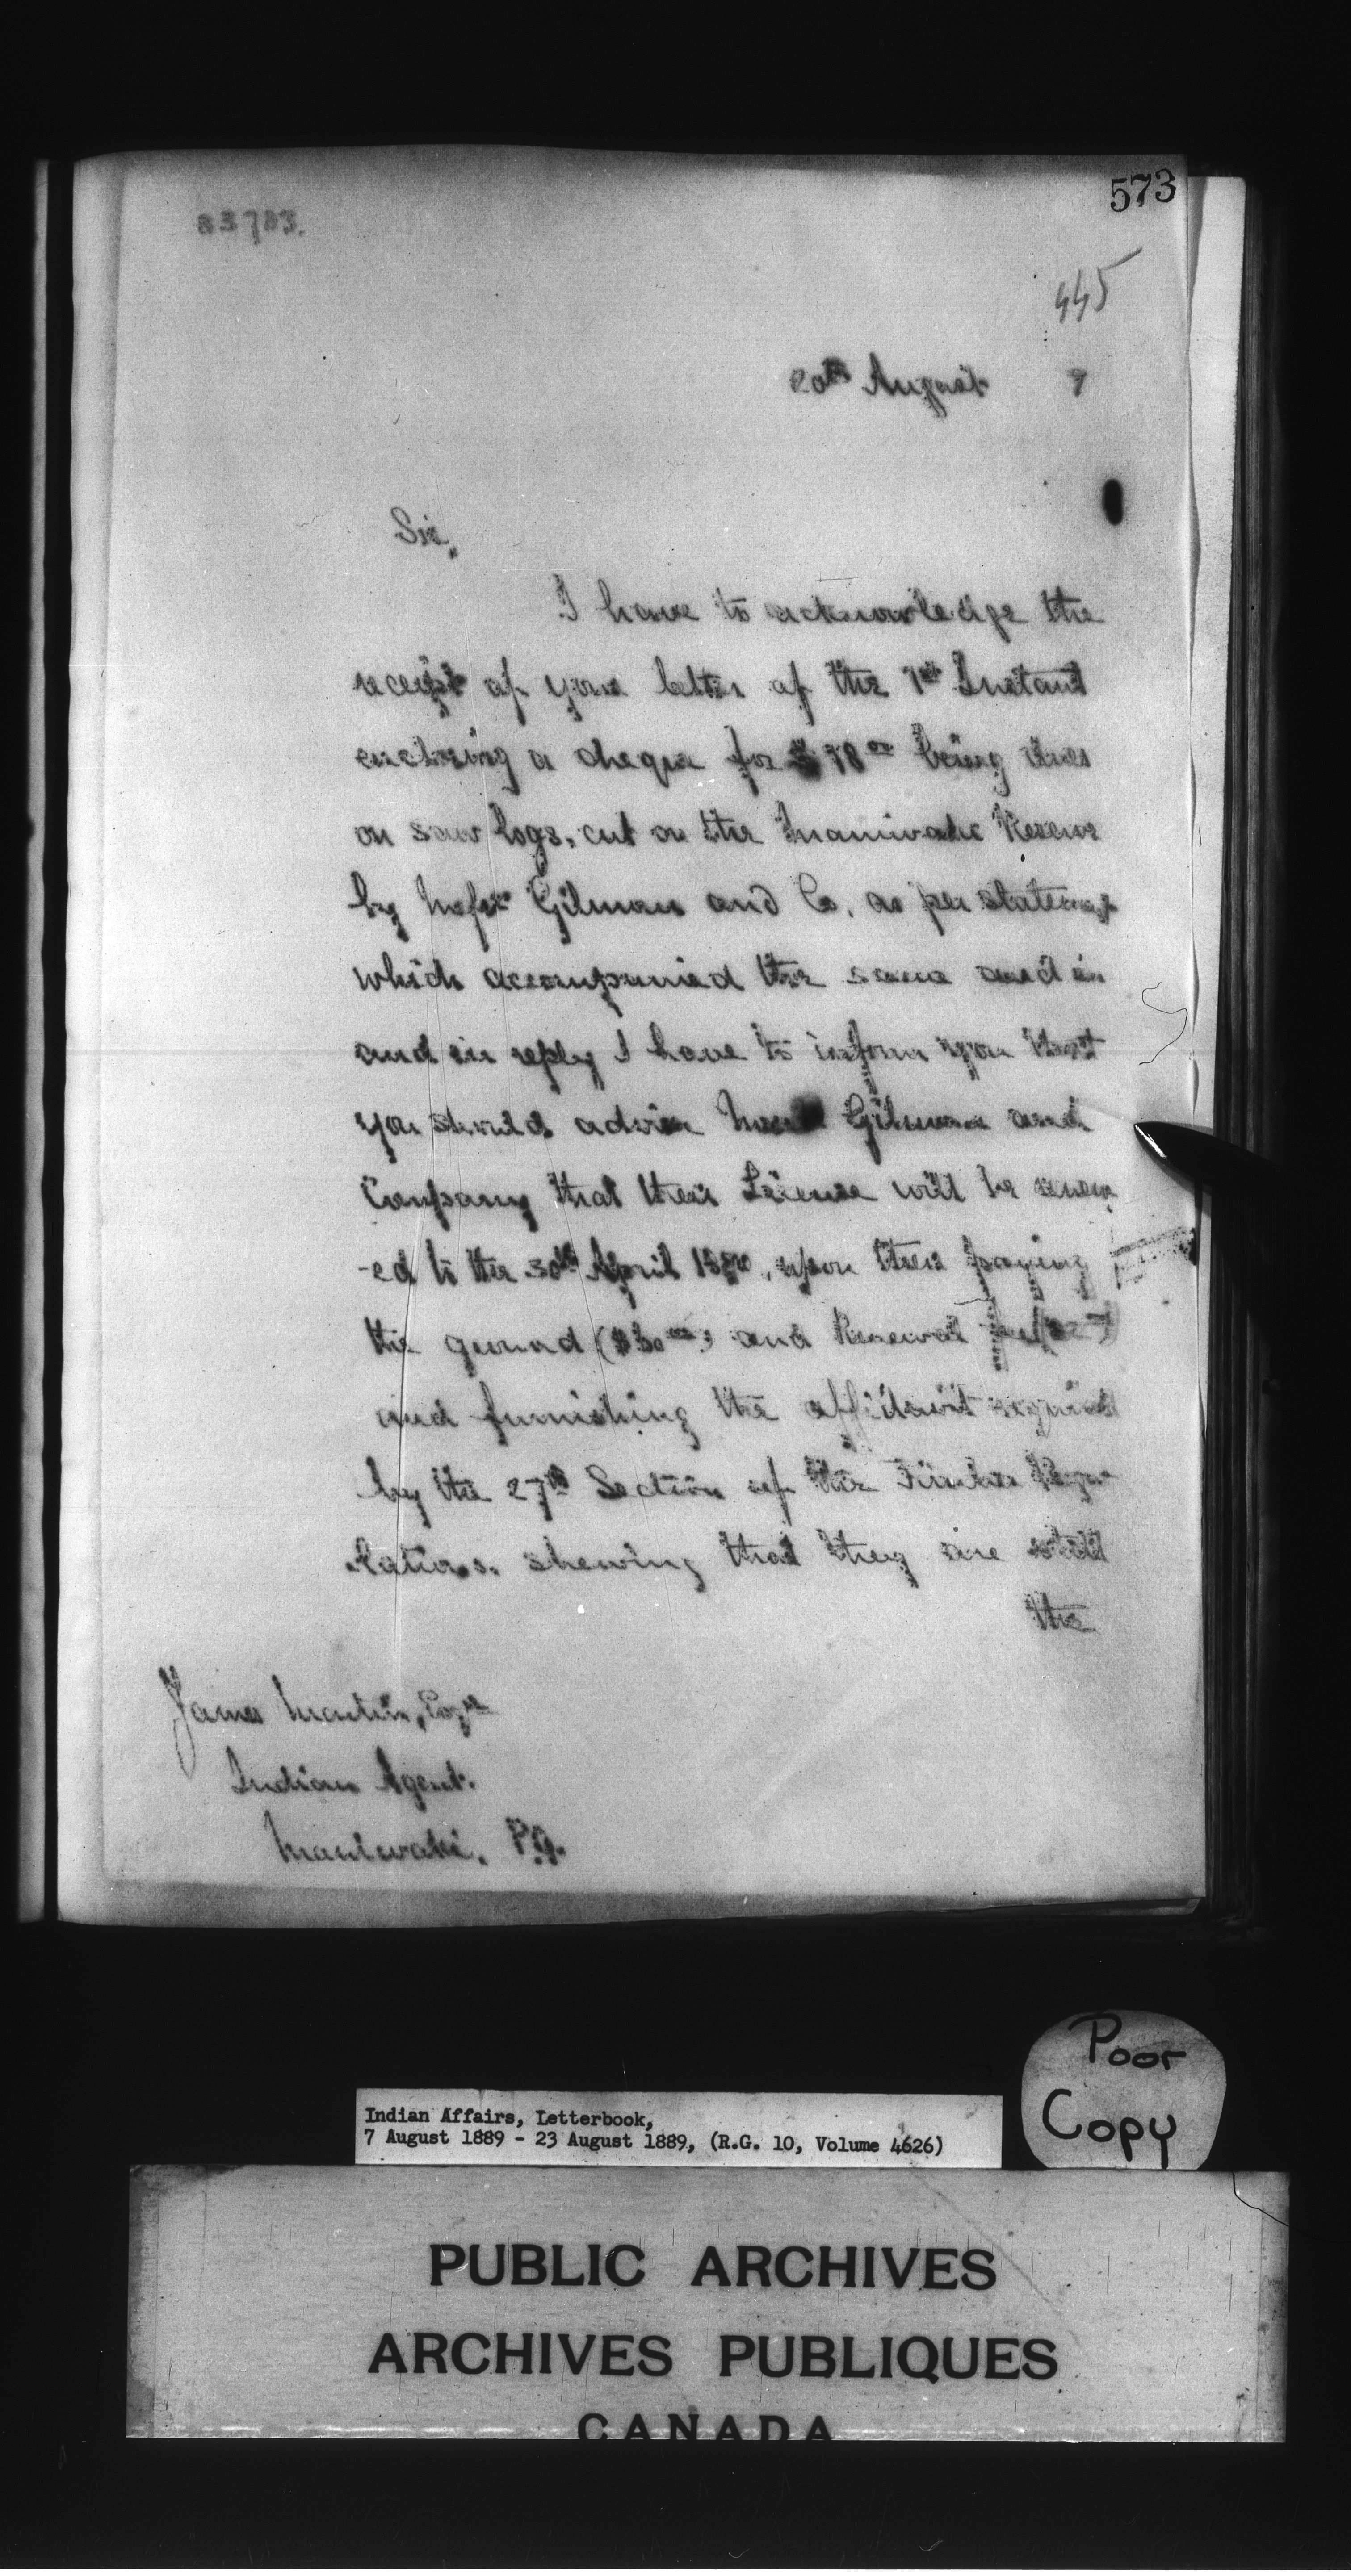 573
445
20th August 9
Sir,
I have to acknowledge the
receipt of your letter of the 1st Instant
enclosing a cheque for being dues
on saw logs, cut on the Maniwake Reserve
by Messrs Gilman and Co. as per statement
which accompanied the same and in
and in reply I have to inform you that
you should advise Gilman and
Company that their License will be renew
-ed to the 30th April upon their paying
the ground and Renewal fee
and furnishing the affidavit required
by the 27th Section of the Timber Regu
lations. shewing that they are still
the
James Martin, Esqre
Indian Agent.
Maniwaki. P.Q.
Poor
Copy
Indian Affairs, Letterbook,
7 August 1889 - 23 August 1889, (R.G. 10, Volume 4626)
PUBLIC ARCHIVES
ARCHIVES PUBLIQUES
CANADA